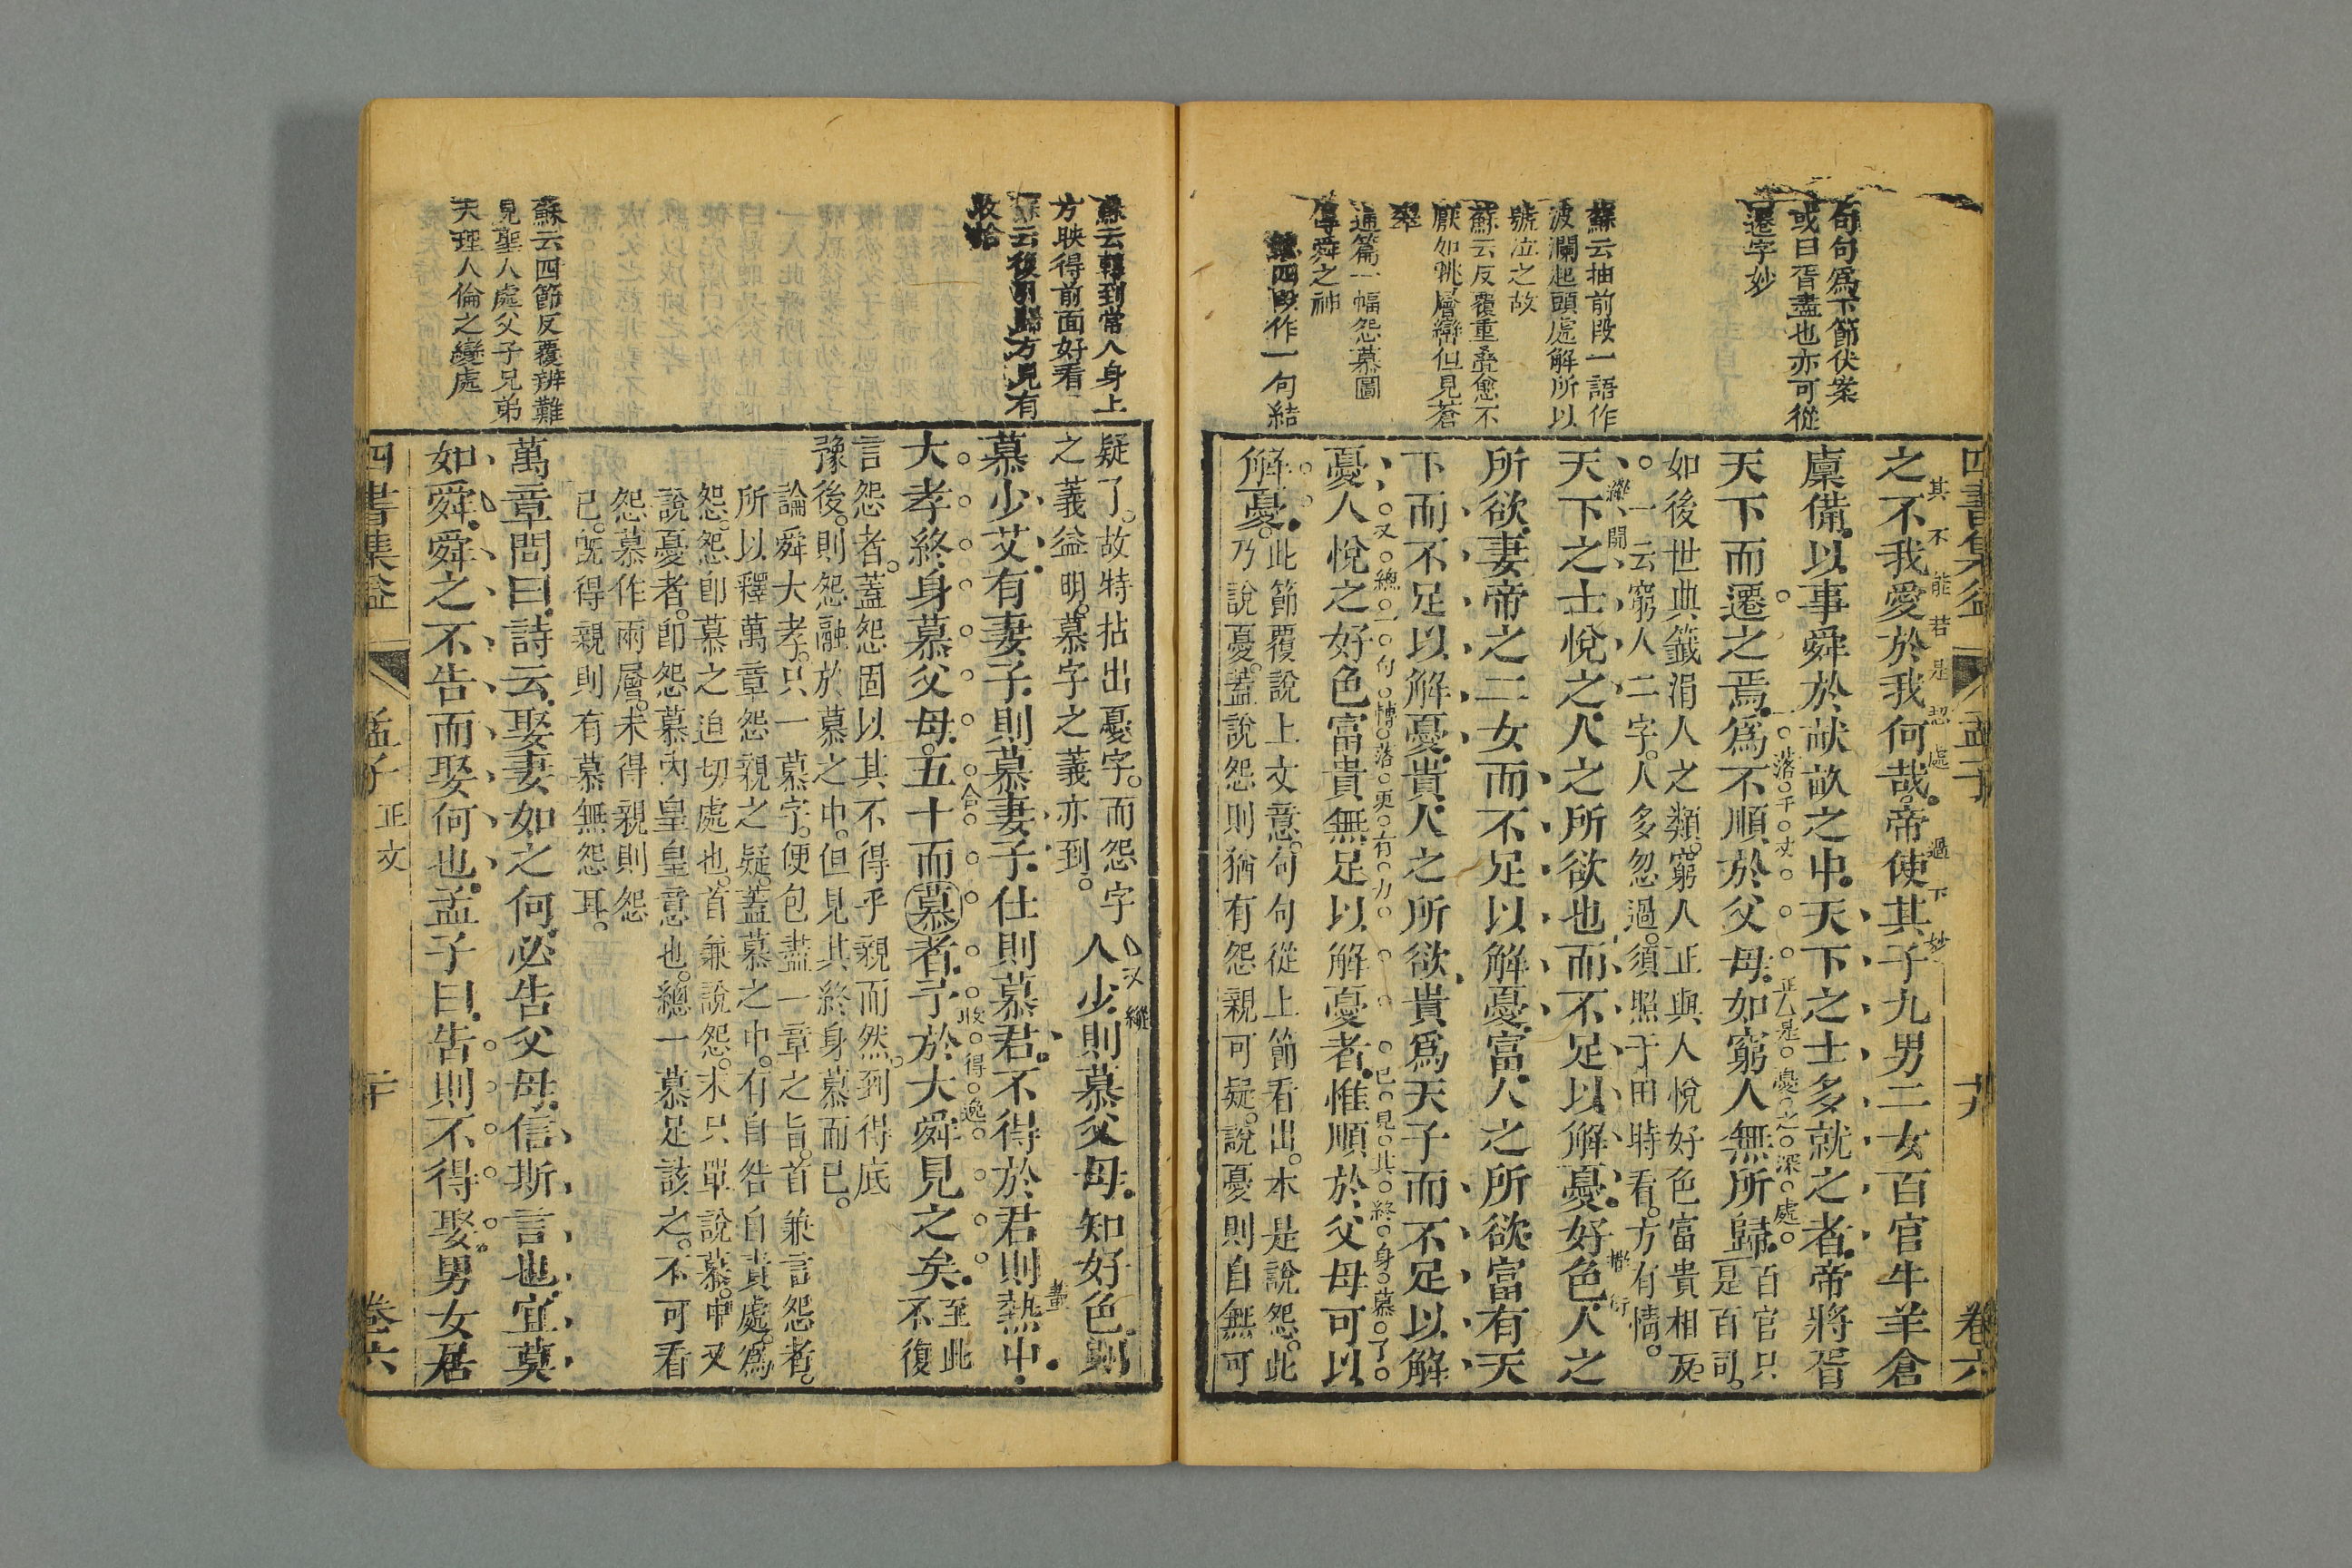 四書集益 孟子 十九 卷六
句句爲下節伏案
或曰胥盡也亦可從
遷字妙
蘇云抽前段一語作
波瀾起頭處解所以
號泣之故
蘇云反覆重疊愈不
厭如眺層巒但見蒼
翠
通篇一幅怨慕圖
傳舜之神
四段作一句結
之不我愛於我何哉帝使其子九男二女百官牛羊倉
其不能若是恝處 過下妙
廩備以事舜於畎畝之中天下之士多就之者帝將胥
天下而遷之焉爲不順於父母如窮人無所歸百官只
一落千丈 正是憂之深處
是百司
如後世典籤涓人之類窮人正與人悅好色富貴相反
一云窮人二字人多忽過須照于田時看方有情
天下之士悅之人之所欲也而不足以解憂好色人之
縱開
所欲妻帝之二女而不足以解憂富人之所欲富有天
下而不足以解憂貴人之所欲貴爲天子而不足以解
憂人悅之好色富貴無足以解憂者惟順於父母可以
又總一句轉落更有力 已見其終身慕了
解憂此節覆說上文意句句從上節看出本是說怨此
乃說憂蓋說怨則猶有怨親可疑說憂則自無可
蘇云轉到常人身上
方映得前面好看
蘇云後引歸方見有
收拾
蘇云四節反覆辨難
見聖人處父子兄弟
天理人倫之變處
疑了故特拈出憂字而怨字
之義益明慕字之義亦到
人少則慕父母知好色則
又縱
慕少艾有妻子則慕妻子仕則慕君不得於君則熱中
大孝終身慕父母五十而慕者予於大舜見之矣至此
合 收得逸
不復
言怨者蓋怨固以其不得乎親而然到得底
豫後則怨融於慕之中但見其終身慕而已
論舜大孝只一慕字便包盡一章之旨首兼言怨者
所以釋萬章怨親之疑蓋慕之中有自咎自責處爲
怨怨卽慕之迫切處也首兼說怨末只單說慕中又
說憂者卽怨慕內皇皇意也總一慕足該之不可看
怨慕作兩層未得親則怨
已旣得親則有慕無怨耳
萬章問曰詩云娶妻如之何必告父母信斯言也宜莫
如舜舜之不告而娶何也孟子曰告則不得娶男女居
四書集益 孟子 正文 二十 卷六